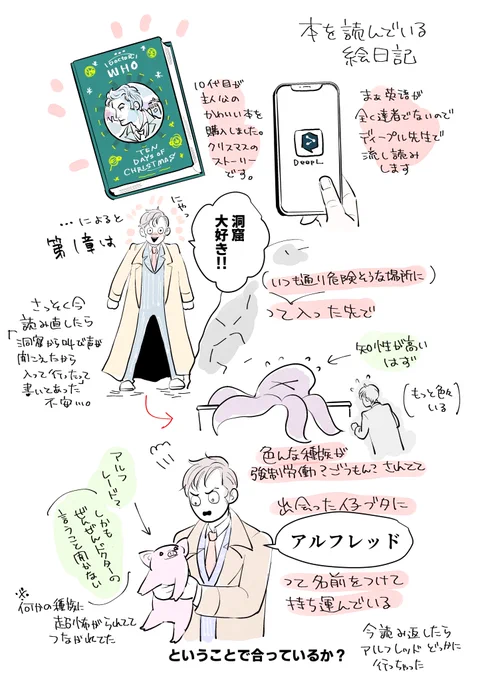 本を読んでいる
絵日記
DOCTOR
WHO
TEN
DAYS OF
CHRISTMAS
10代目が
主人公の
かわいい本を
購入しました。
クリスマスの
ストーリー
です。
DeepL
まあ英語が
全く達者でないので
ディープル先生で
流し読み
します
…によると
第1章は
にやっ
洞窟
大好き!!
(いつも通り危険そうな場所に)
って入った先で
さっそく今
読み直したら
「洞窟から叫び声が
聞こえたから
入って行ったって
書いてあった」
不安い。
知性が高い
はず
(もっと色々
いる)
色んな種族が
強制労働?ごうもん?されてて
出会った仔ブタに
アルフレッド
って名前をつけて
持ち運んでいる
アルフ
レード?
しかも
ぜんぜんドクターの
言うこと聞かない
※
何かの種族に
超怖がられてて
つながれてた
ということで合っているか?
今読み直したら
アルフレッドどっかに
行っちゃった